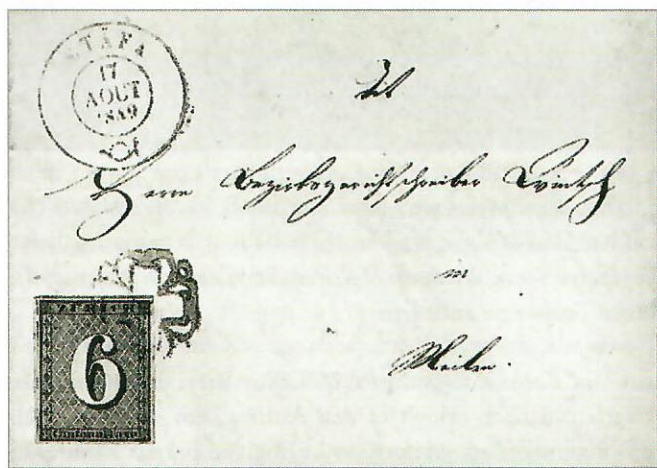 STÄFA
17
AOUT
1849
Herrn Bezirksgerichtschreiber
in
Meilen.
ZÜRICH
6